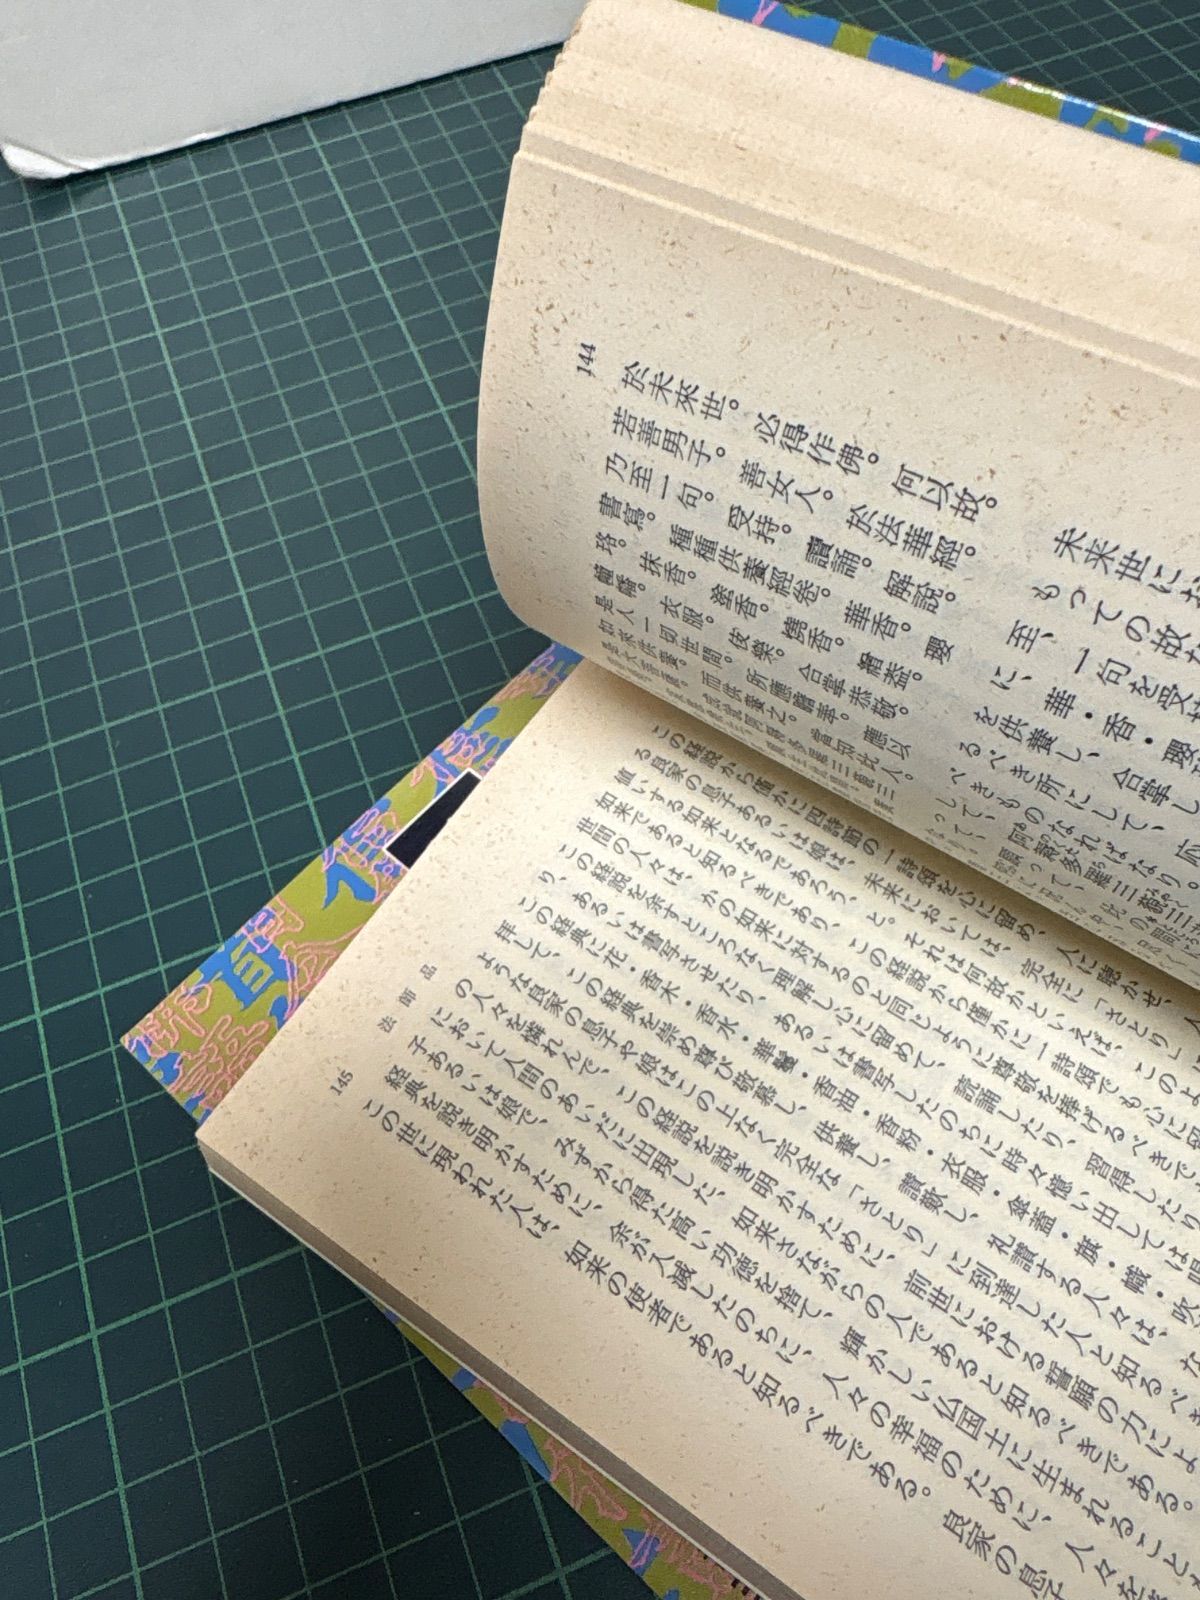 144
於未來世。必得作佛。何以故。
若善男子。善女人。於法華經。
乃至一句。受持。讀誦。解説。
書寫。種種供養經卷。華香。瓔
珞。抹香。塗香。燒香。繒蓋。
幢幡。衣服。伎樂。合掌恭敬。
是人一切世間。所應瞻奉。應以
如來供養。而供養之。當知此人。
是大菩薩。成就阿耨多羅三藐三
未来世にお
もっての故な
至、一句を受持
に、華・香・瓔
を供養し、合掌し
るべき所にして、応
べきものなればなり。
して、阿耨多羅三藐三
この経説から僅かに四詩節の一詩頌を心に留め、人に聴かせ、
る良家の息子あるいは娘は、未来においては、完全に「さとり」に
値いする如来となるであろう、と。それは何故かといえば、このよ
如来であると知るべきであり、この経説から僅かに一詩頌でも心に留
世間の人々は、かの如来に対するのと同じように尊敬を捧げるべきで
この経説を余すところなく理解し心に留めて、読誦したり、習得したり
り、あるいは書写させたり、あるいは書写したのちに時々憶い出しては
この経典に花・香木・香水・華鬘・香油・香粉・衣服・傘蓋・旗・幟・吹
拝して、この経典を崇め尊び敬慕し、供養し、讃歎し、礼讃する人々は、
ような良家の息子や娘はこの上なく完全な「さとり」に到達した人と知るべき
の人々を憐れんで、この経説を説き明かすために、前世における誓願の力によ
において人間のあいだに出現した、如来さながらの人であると知るべきである。
子あるいは娘で、みずから得た高い功徳を捨て、輝かしい仏国土に生まれること
経典を説き明かすために、余が入滅したのちに、人々の幸福のために、人々を
この世に現われた人は、如来の使者であると知るべきである。良家の息子
法師品
145